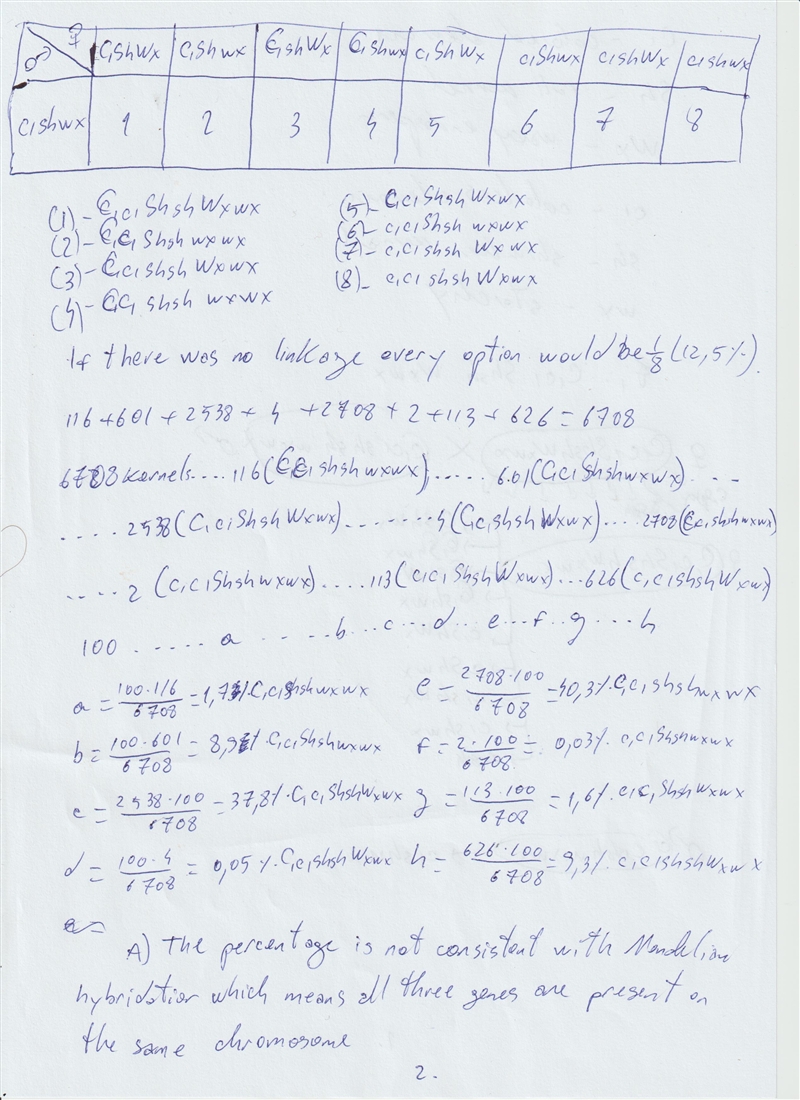 ♂ ♀ C₁ShWx C₁shwx C₁shWx C₁shwx c₁ShWx c₁Shwx c₁shWx c₁shwx
c₁shwx 1 2 3 4 5 6 7 8
(1) - C₁c₁ Shsh Wxwx (5) - C₁c₁ Shsh Wxwx
(2) - C₁c₁ Shsh wxwx (6) - c₁c₁ Shsh wxwx
(3) - C₁c₁ shsh Wxwx (7) - c₁c₁ shsh Wxwx
(4) - C₁c₁ shsh wxwx (8) - c₁c₁ shsh Wxwx
If there was no linkage every option would be 1/8 (12,5%).
116 + 601 + 2538 + 4 + 2708 + 2 + 113 + 626 = 6708
6708 kernels .... 116 (C₁c₁ shsh wxwx) ..... 601 (C₁c₁ Shshwxwx) ....
.... 2538 (C₁c₁ Shsh Wxwx) ........ 4 (C₁c₁ shsh Wxwx) .... 2708 (c₁c₁ shsh wxwx)
..... 2 (c₁c₁ Shsh wxwx) ..... 113 (c₁c₁ Shsh Wxwx) ... 626 (c₁c₁ shsh Wxwx)
100 ..... a ..... b ... c ... d ... e ... f .. g ... h
a = 100·116/6708 = 1,73%. C₁c₁ shsh wxwx e = 2708·100/6708 = 40,3%. c₁c₁ shsh wxwx
b = 100·601/6708 = 8,9%. C₁c₁ Shsh wxwx f = 2·100/6708 = 0,03%. c₁c₁ Shsh wxwx
c = 2538·100/6708 = 37,8%. C₁c₁ Shsh Wxwx g = 113·100/6708 = 1,6%. c₁c₁ Shsh Wxwx
d = 100·4/6708 = 0,05%. C₁c₁ shsh Wxwx h = 626·100/6708 = 9,3%. c₁c₁ shsh Wxwx
A) The percentage is not consistent with Mendelian
hybridation which means all three genes are present on
the same chromosome
2.